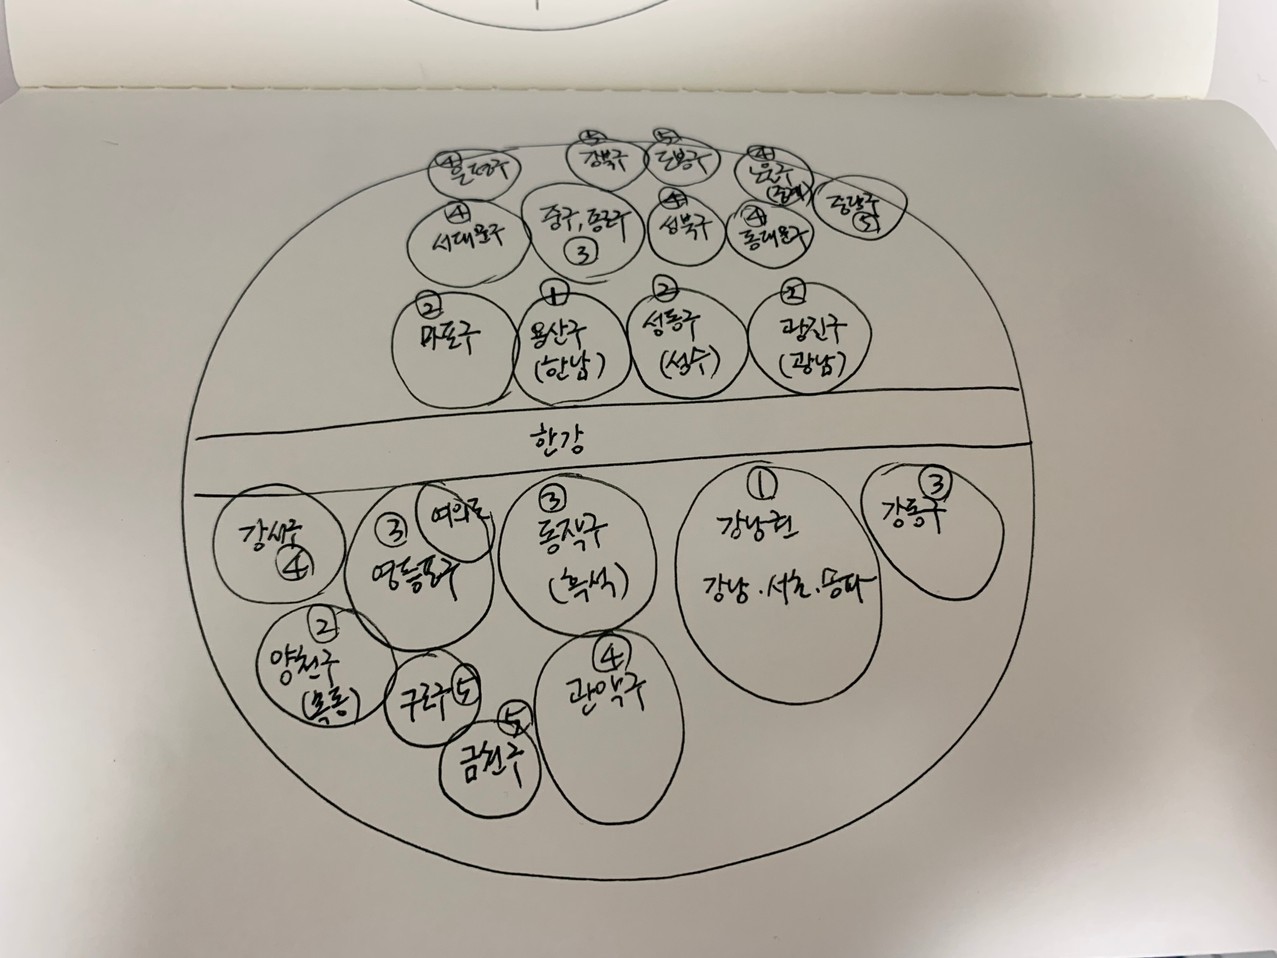 ④
은평구
⑤
강북구
⑤
도봉구
④
노원구
(중계)
중랑구
⑤
④
서대문구
중구, 종로구
③
④
성북구
④
동대문구
②
마포구
①
용산구
(한남)
②
성동구
(성수)
②
광진구
(광남)
한강
강서구
④
③
여의도
영등포구
③
동작구
(흑석)
①
강남권
강남·서초·송파
③
강동구
②
양천구
(목동)
구로구⑤
⑤
금천구
④
관악구